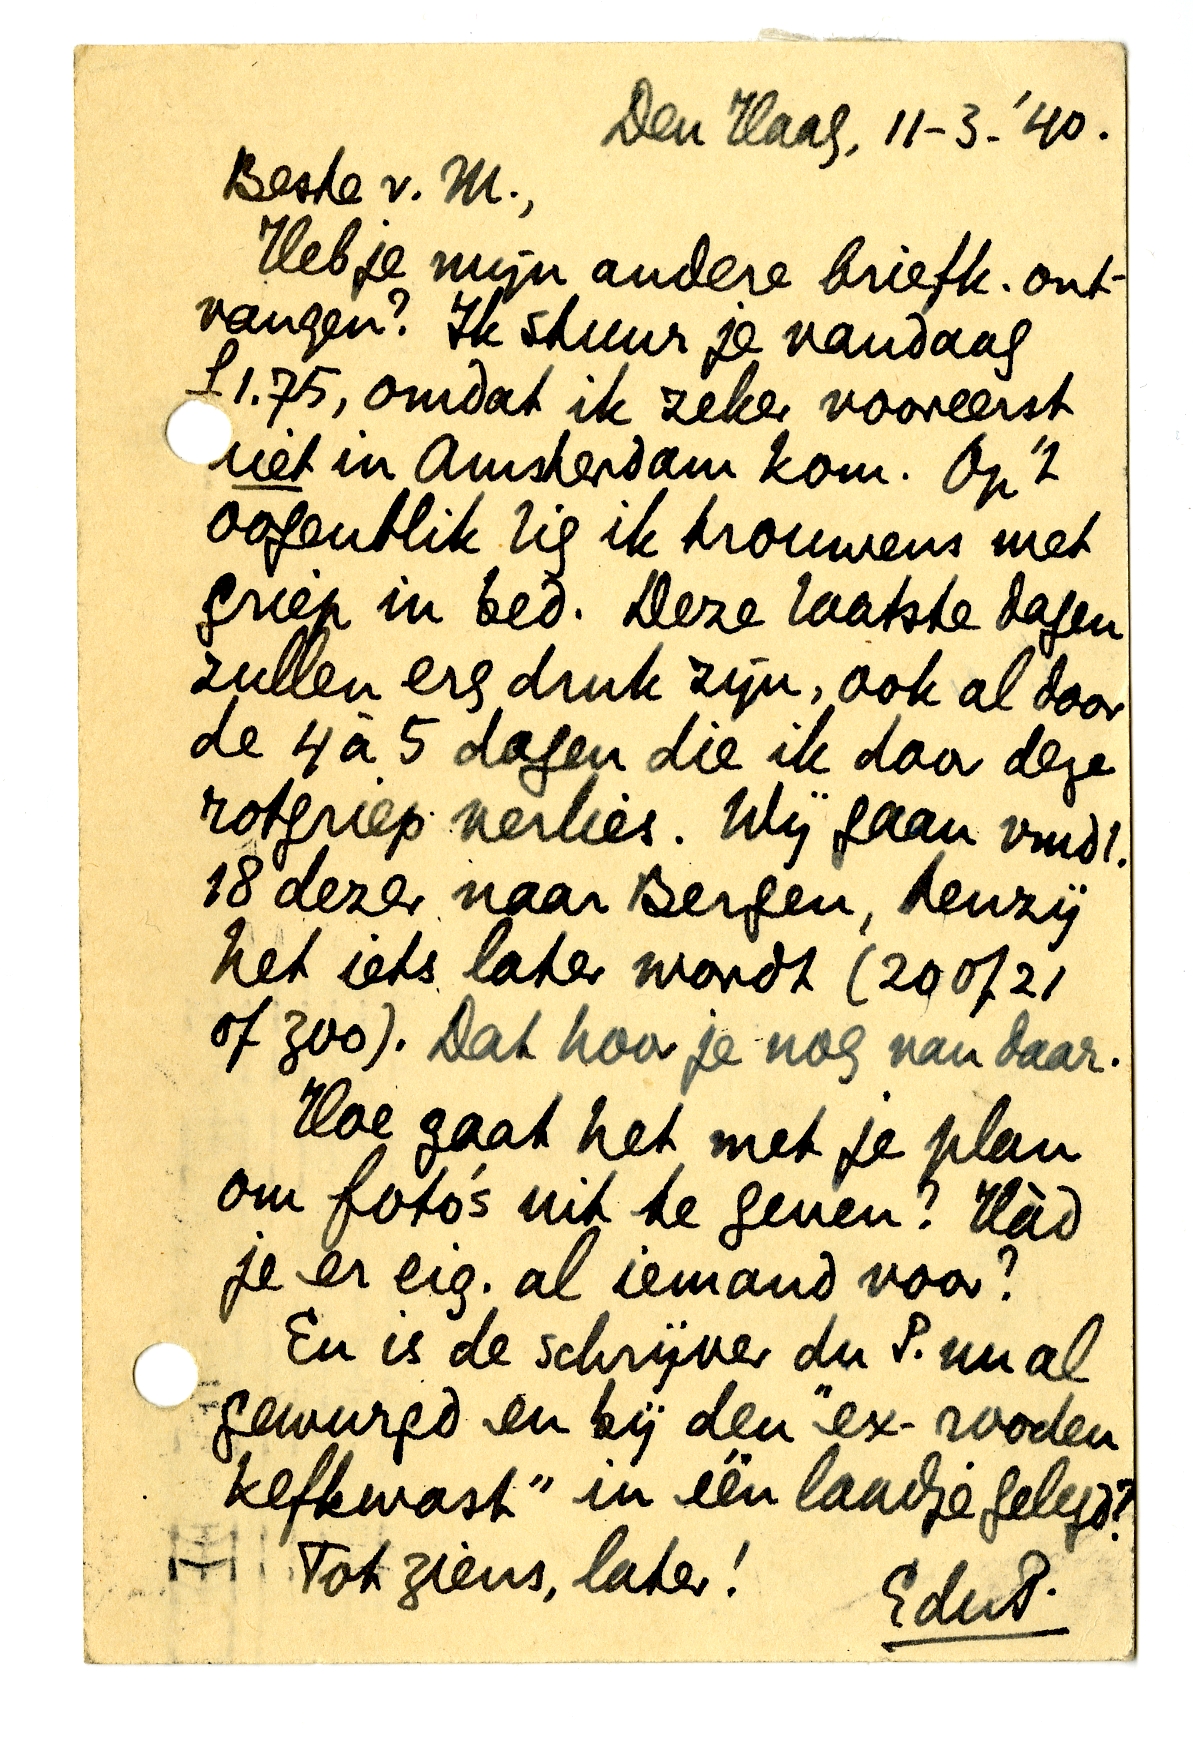 Den Haag, 11-3-'40.
Beste v. M.,
Heb je mijn andere briefk. ont-
vangen? Ik stuur je vandaag
f 1.75, omdat ik zeker vooreerst
niet in Amsterdam kom. Op 't
oogenblik lig ik trouwens met
griep in bed. Deze laatste dagen
zullen erg druk zijn, ook al door
de 4 à 5 dagen die ik door deze
rotgriep verlies. Wij gaan vmdl.
18 dezer naar Bergen, tenzij
het iets later wordt (20 of 21
of zoo). Dat hoor je nog van daar.
Hoe gaat het met je plan
om foto's uit te geven? Hàd
je er eig. al iemand voor?
En is de schrijver du P. nu al
gewurgd en bij den "ex-rooden
kefkwast" in één laadje gelegd?
Tot ziens, later!
EduP.